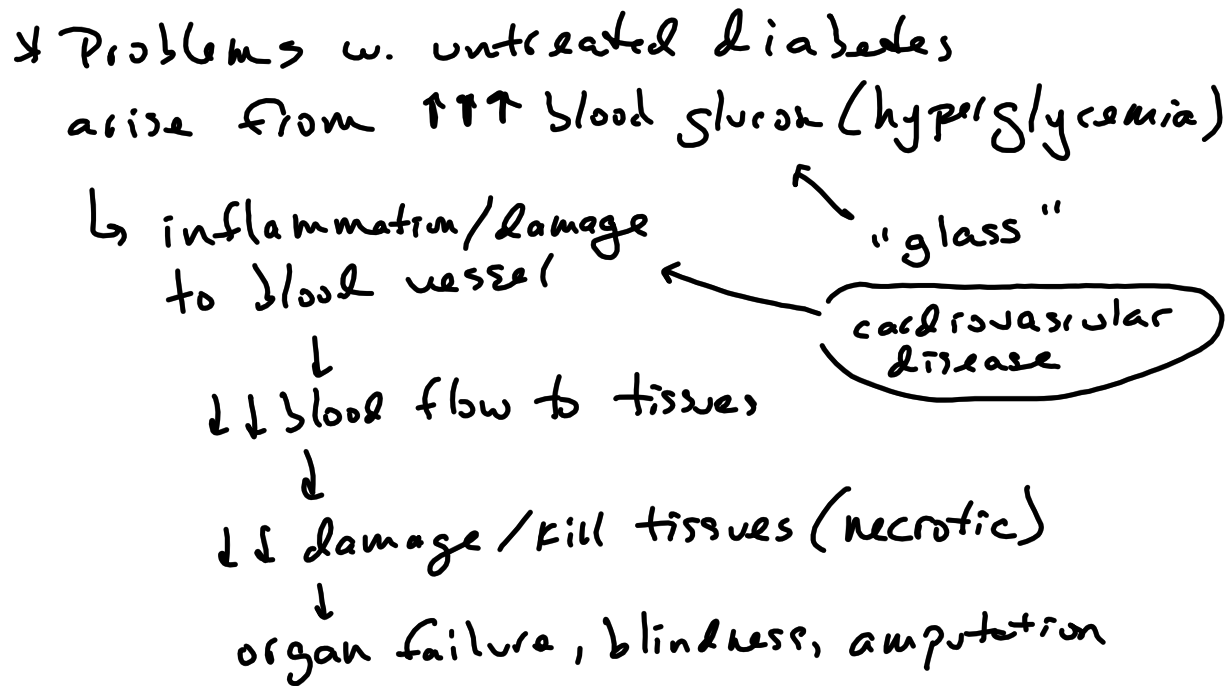 * Problems w. untreated diabetes
arise from ↑↑↑ blood glucose (hyperglycemia)
↳ inflammation/damage
"glass"
to blood vessel
cardiovascular
disease
↓
↓↓ blood flow to tissues
↓
↓↓ damage/kill tissues (necrotic)
↓
organ failure, blindness, amputation